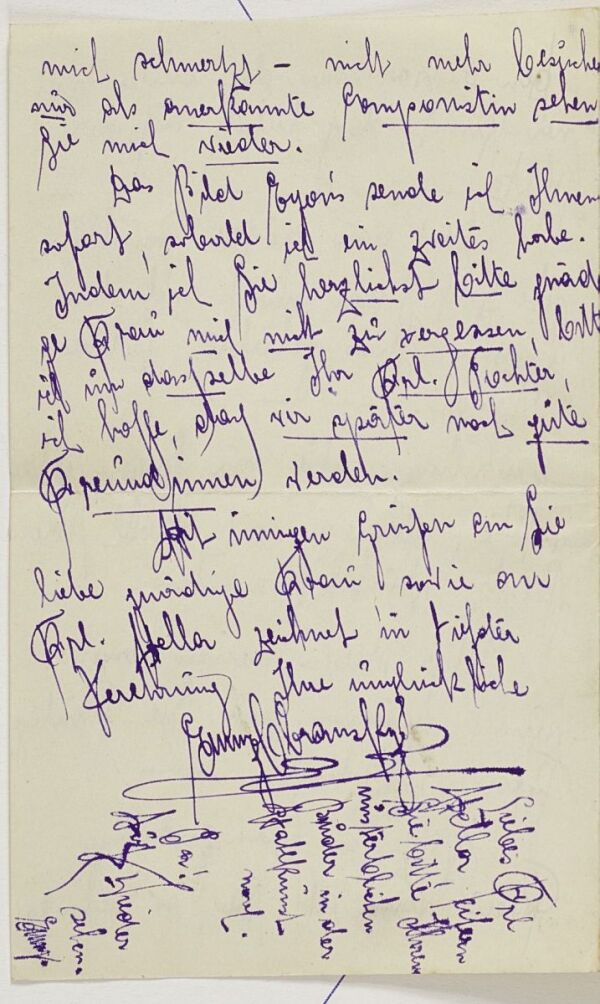 mich schmerzt – nicht mehr besuchen
nur als anerkannte Componistin sehen
Sie mich wieder.
Das Bild Egon's sende ich Ihnen
sofort, sobald ich ein zweites habe.
Indem ich Sie herzlichst bitte gnädi
ge Frau mich nicht zu vergessen, bitte
ich um dasselbe Ihr Frl. Tochter,
ich hoffe, dass wir später noch gute
Freundinnen werden.
Mit innigen Grüssen an Sie
liebe gnädige Frau sowie an
Frl. Stella zeichnet in tiefster
Verehrung Ihre unglückliche
Liebes Frl
Stella eifern
Sie bitte Ihrem
unsterblichen
Bruder in der
nach.
Auf
Wieder
sehen.